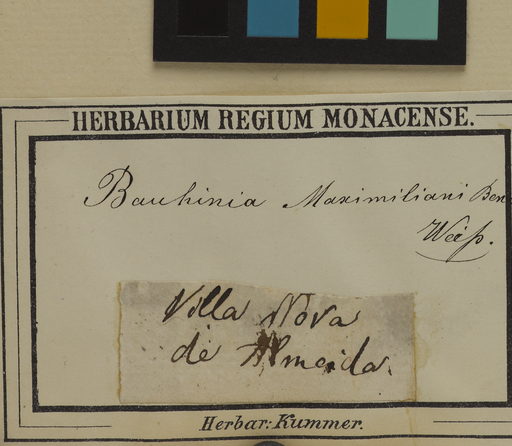 HERBARIUM REGIUM MONACENSE.
Bauhinia Maximiliani Ben
Villa Nova
de Almeida.
Herbar: Kummer.